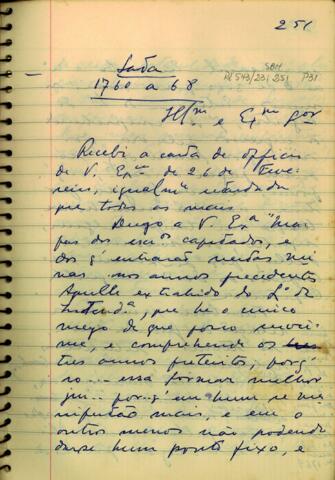 251
Lata
SBH
Pi 543/231 251 P31
1760 a 68
Illm e Exm Snr
Recebi a carta de officio
de V. Exca de 26 de Feve-
reiro, igualmte retardada
que todas as mais.
Dirigo a V. Exa "Map-
pas dos escos capitados, e
dos q' entrarão nestas mi-
nas nos annos precedentes
Aquelle extrahido do Lo da
Intenda, que he o unico
meyo de que posso servir-
me, e comprehende os
tres annos preteritos, porq'
... essa formar melhor
... por q' em hum se ma-
nifestão mais, e em o
outro menos não podendo
darse hum ponto fixo, e